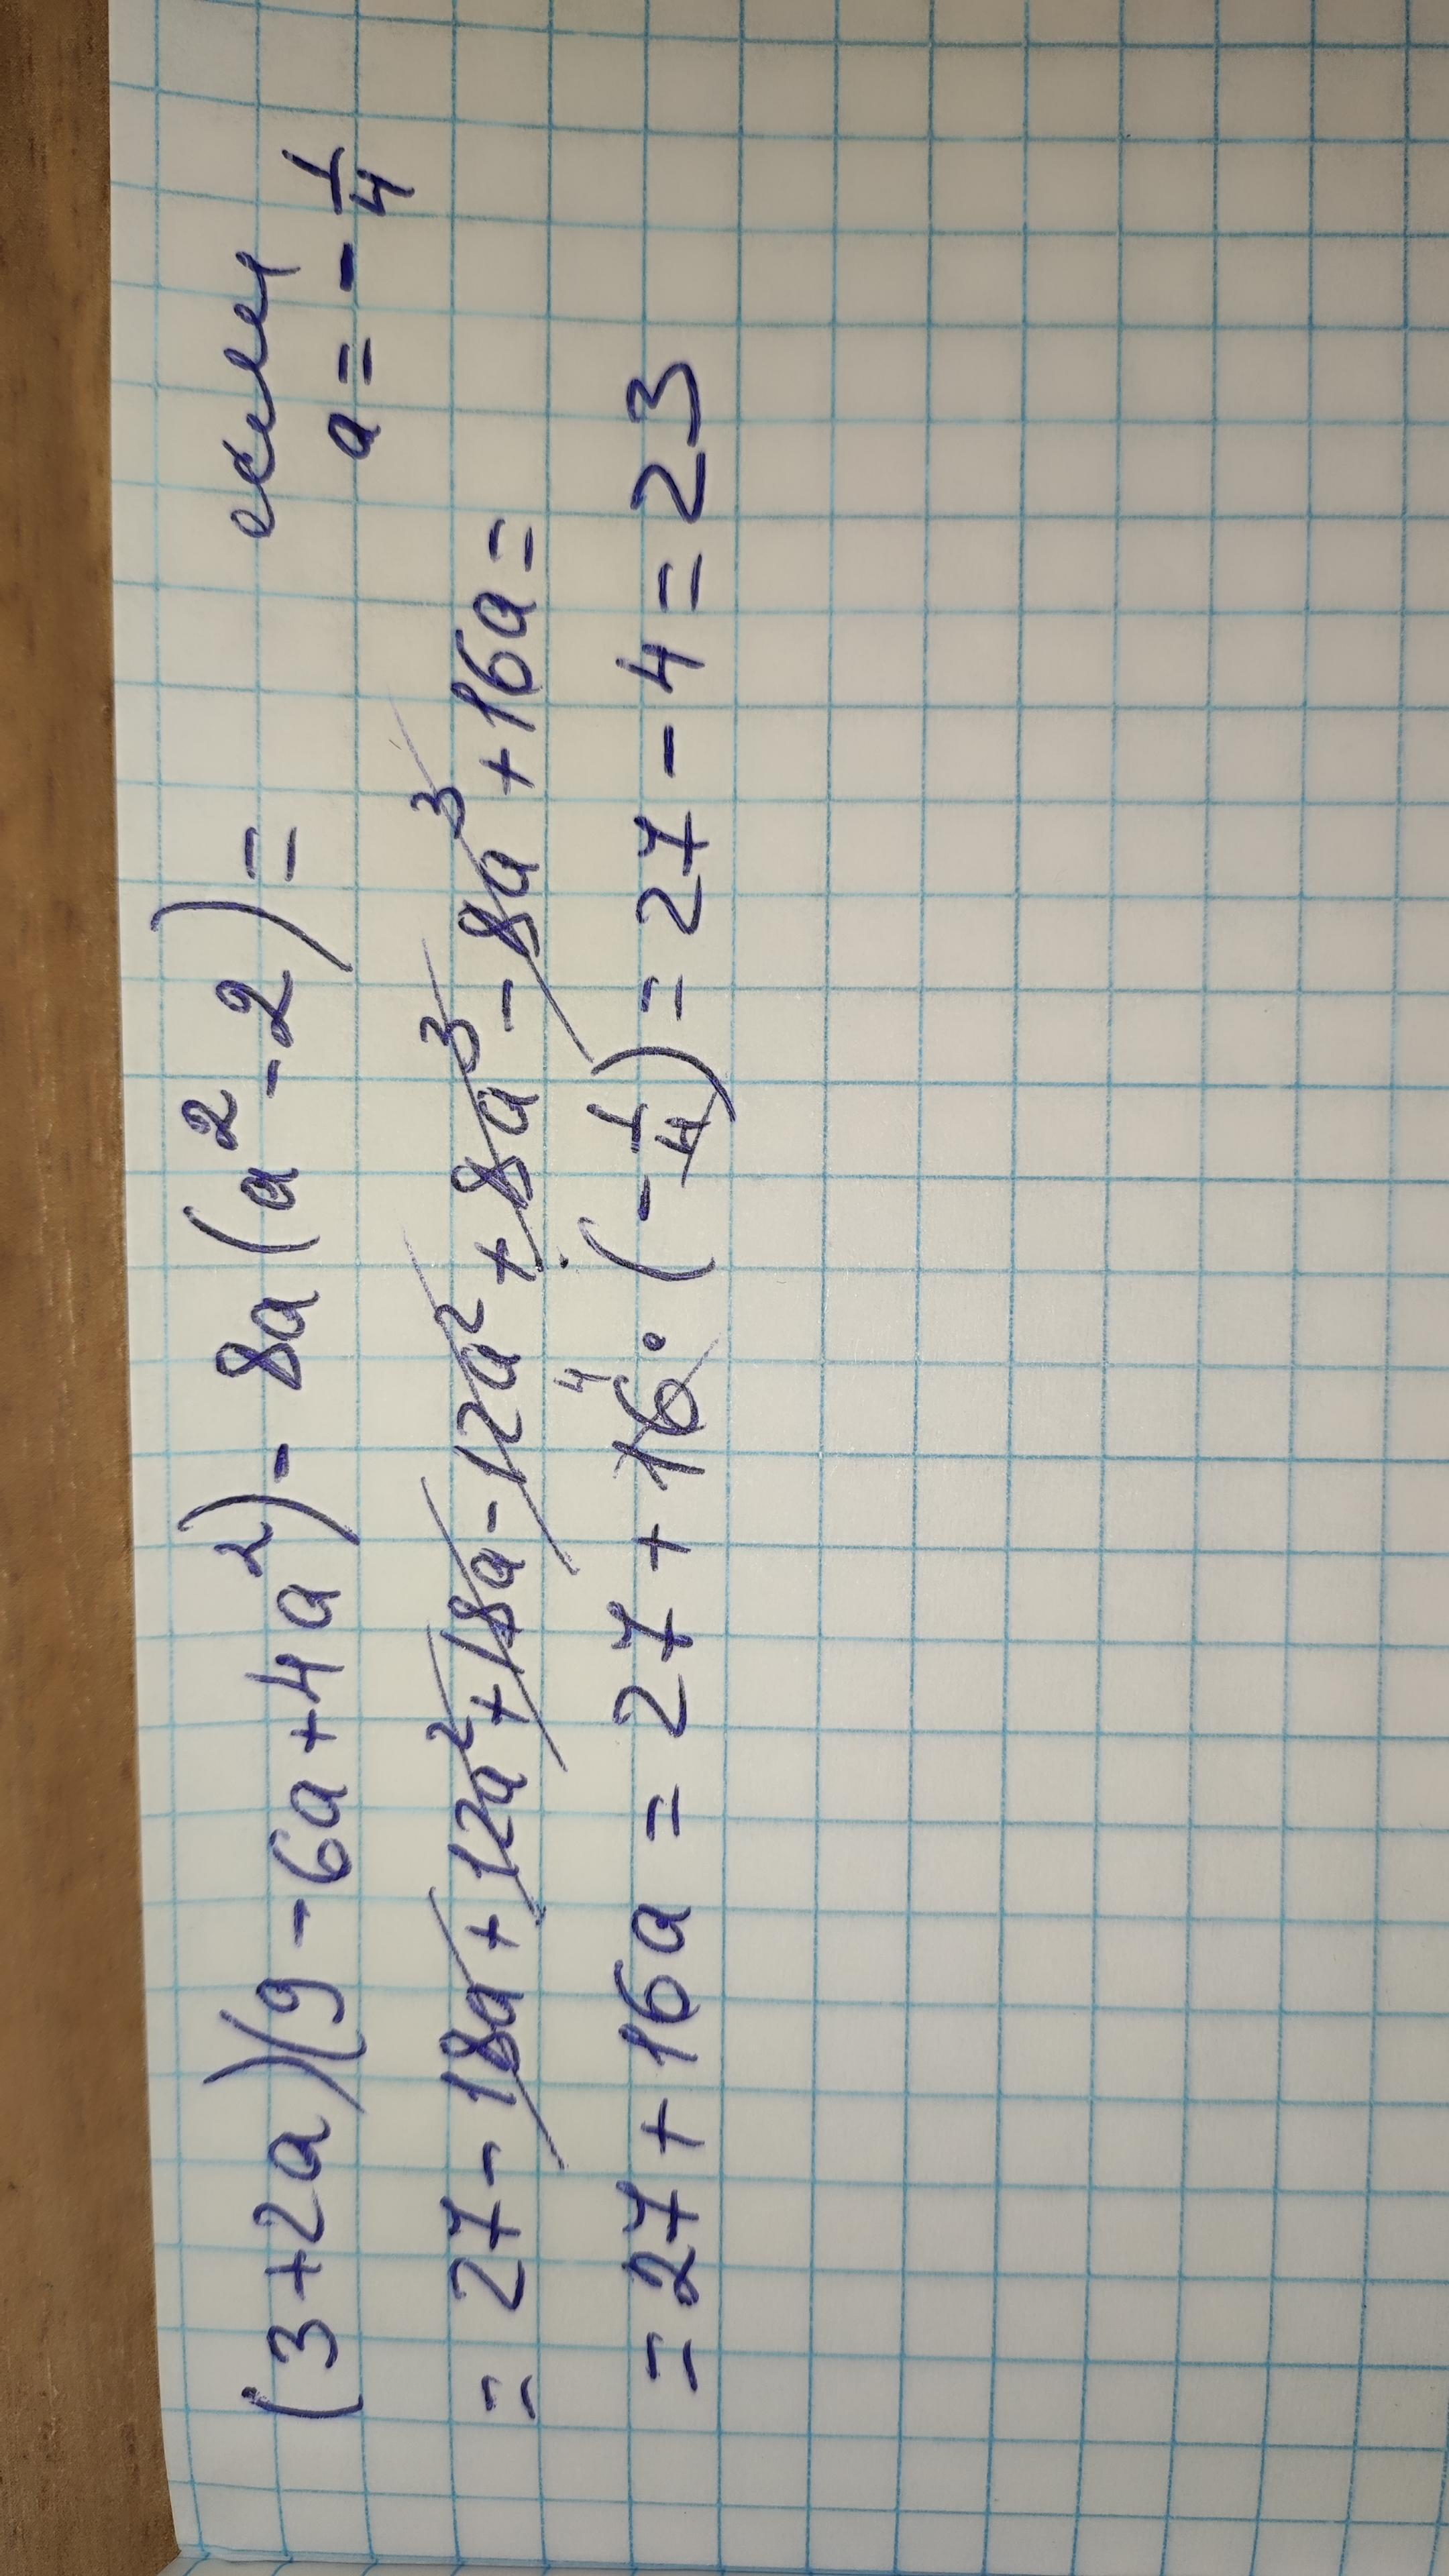 (3+2a)(9-6a+4a²)-8a(a²-2)= если
a=-1/4
=27-18a+12a²+18a-12a²+8a³-8a³+16a=
=27+16a=27+16⁴·(-1/4)=27-4=23